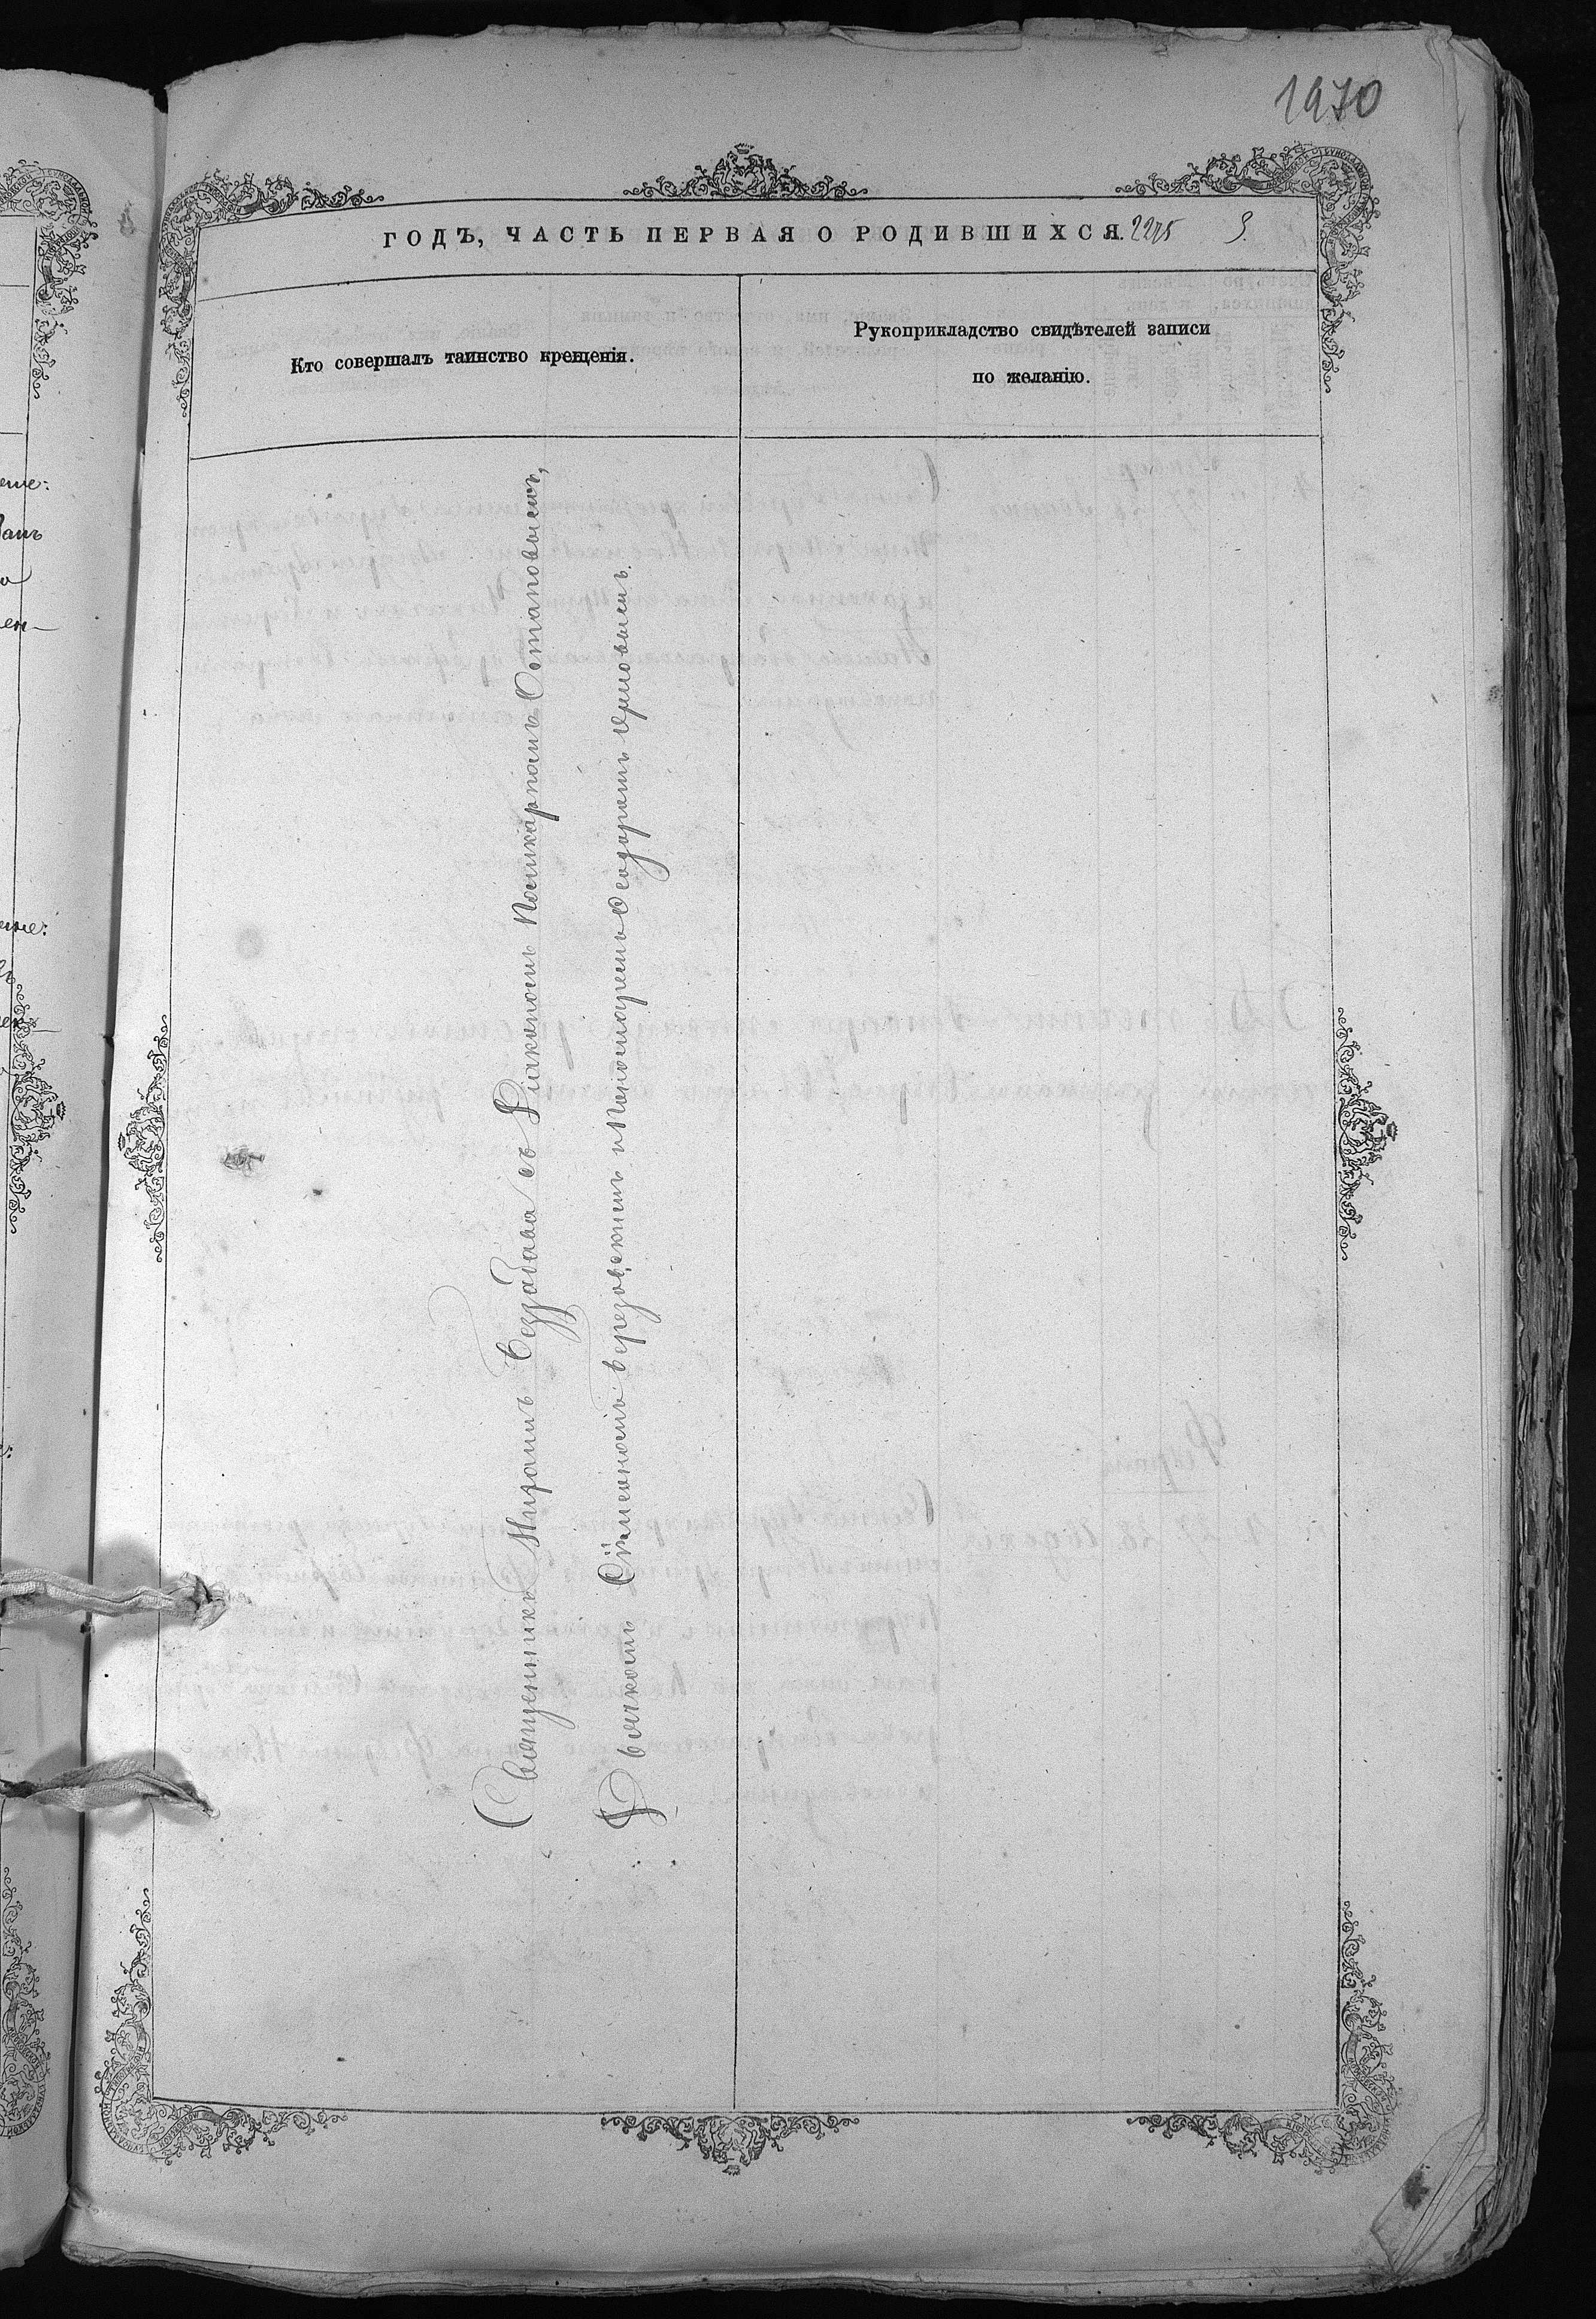 1970
ГОДЪ, ЧАСТЬ ПЕРВАЯ О РОДИВШИХСЯ. 2275 3.
Кто совершалъ таинство крещенія.
Рукоприкладство свидѣтелей записи
по желанію.
Священникъ Миронъ Беззабава съ Діакономъ Поликарпомъ Остаповымъ,
Дьячкомъ Сѵмеономъ Березовскимъ и Пономаремъ Ѳеодоромъ